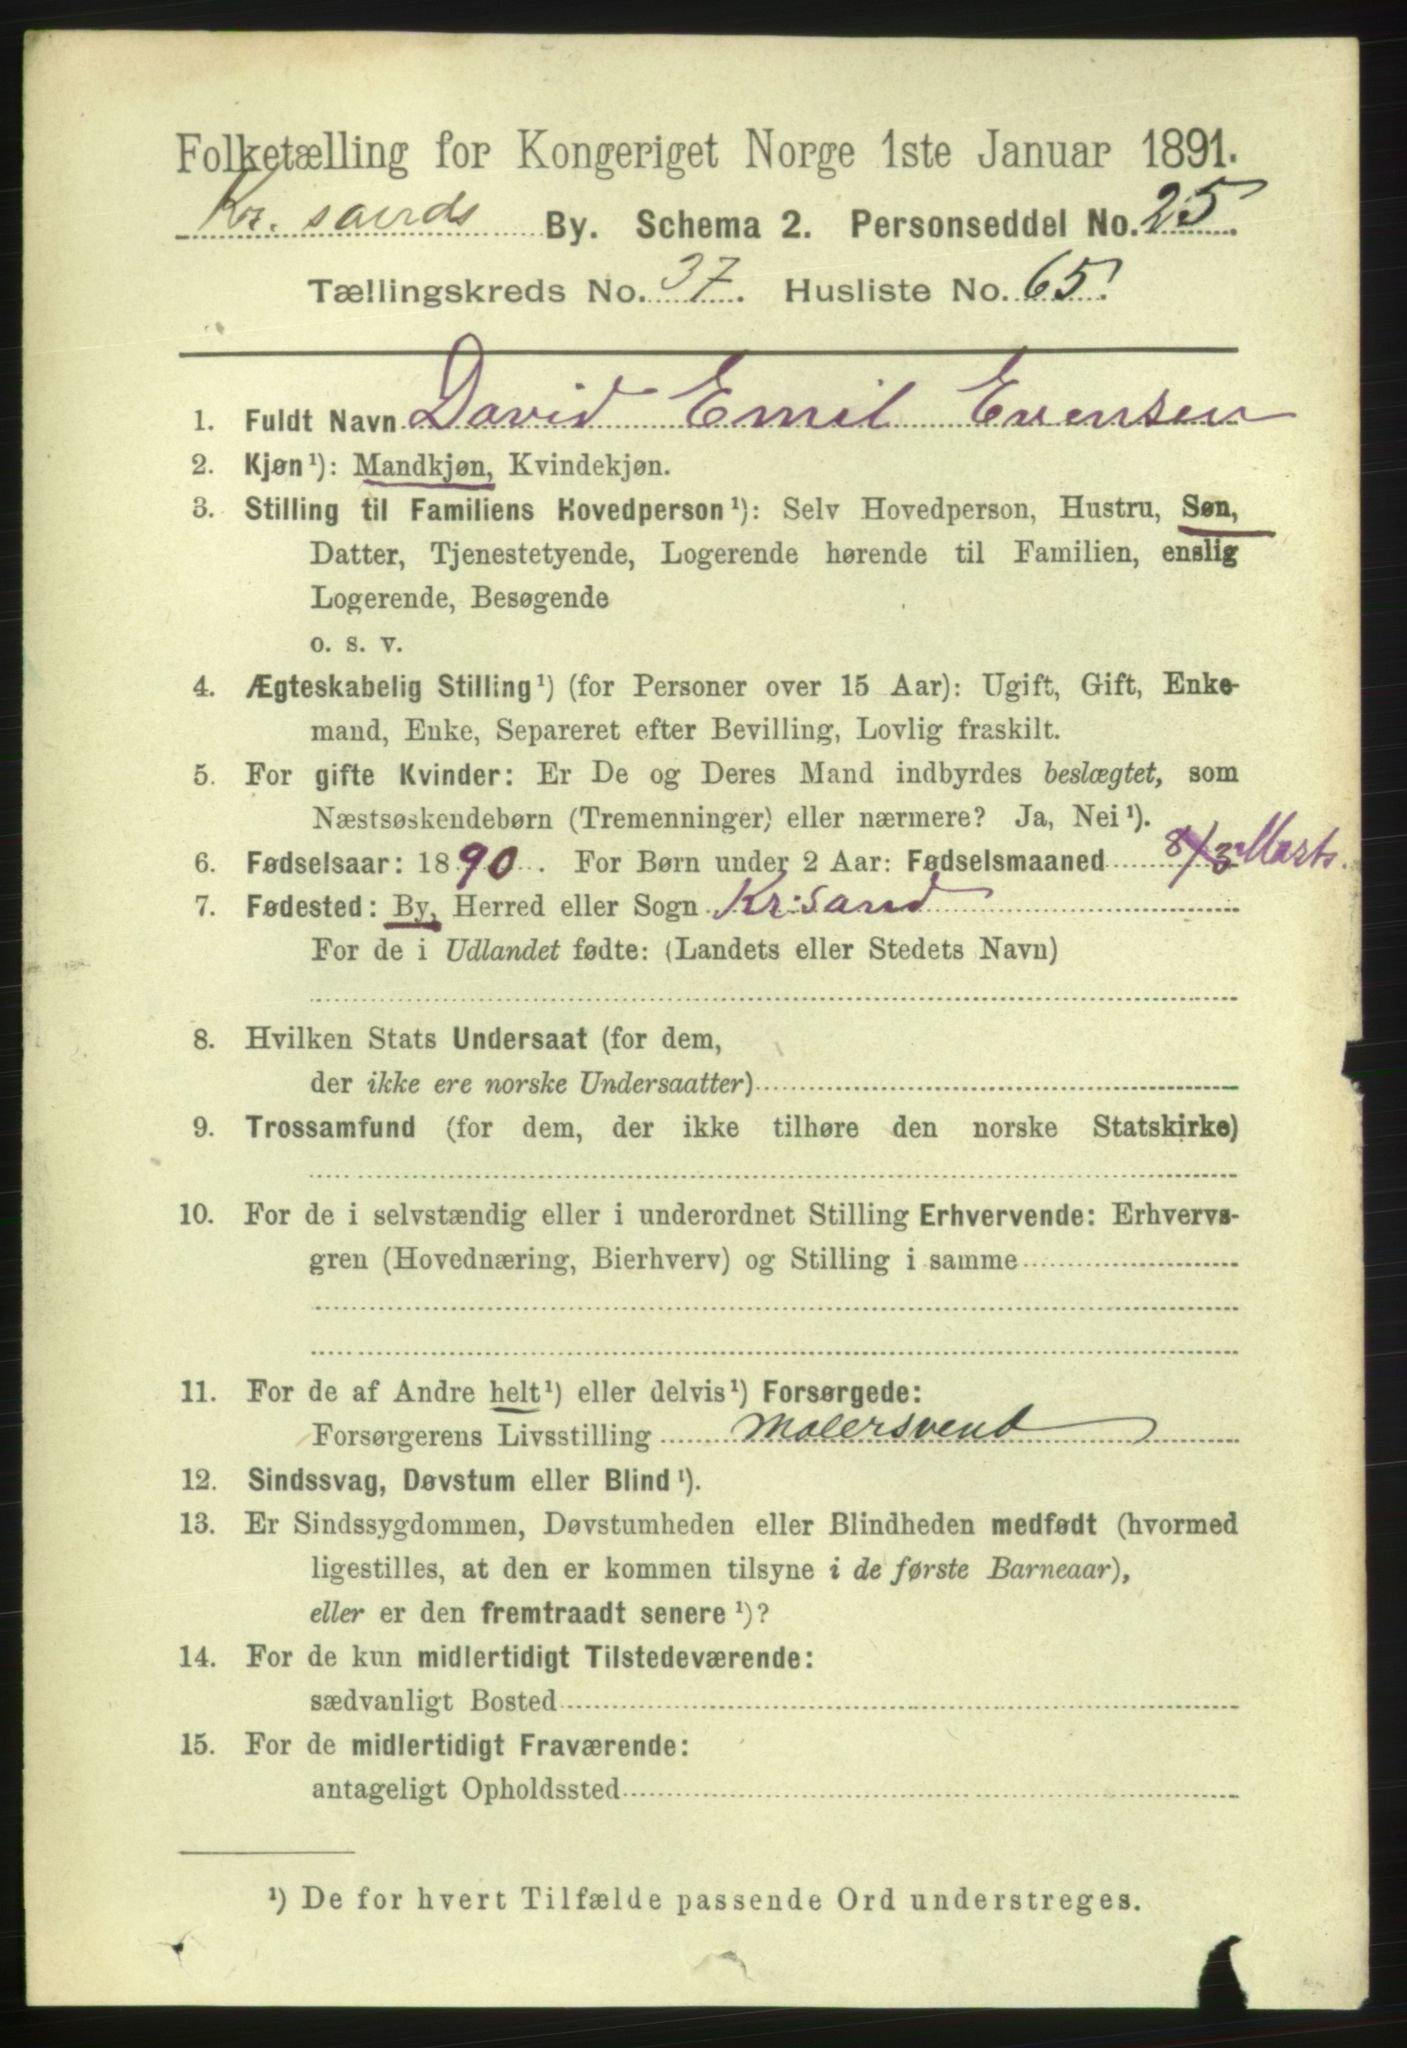 Folketælling for Kongeriget Norge 1ste Januar 1891.
Kr. sands By. Schema 2. Personseddel No. 25.
Tællingskreds No. 37. Husliste No. 65.
1. Fuldt Navn David Emil Evensen
2. Kjøn¹): Mandkjøn, Kvindekjøn.
3. Stilling til Familiens Hovedperson¹): Selv Hovedperson, Hustru, Søn,
Datter, Tjenestetyende, Logerende hørende til Familien, enslig
Logerende, Besøgende
o. s. v.
4. Ægteskabelig Stilling¹) (for Personer over 15 Aar): Ugift, Gift, Enke-
mand, Enke, Separeret efter Bevilling, Lovlig fraskilt.
5. For gifte Kvinder: Er De og Deres Mand indbyrdes beslægtet, som
Næstsøskendebørn (Tremenninger) eller nærmere? Ja, Nei¹).
6. Fødselsaar: 1890. For Børn under 2 Aar: Fødselsmaaned 8/3 Marts.
7. Fødested: By, Herred eller Sogn Kr:sand
For de i Udlandet fødte: (Landets eller Stedets Navn)
8. Hvilken Stats Undersaat (for dem,
der ikke ere norske Undersaatter)
9. Trossamfund (for dem, der ikke tilhøre den norske Statskirke)
10. For de i selvstændig eller i underordnet Stilling Erhvervende: Erhvervs-
gren (Hovednæring, Bierhverv) og Stilling i samme
11. For de af Andre helt¹) eller delvis¹) Forsørgede:
Forsørgerens Livsstilling Malersvend
12. Sindssvag, Døvstum eller Blind¹).
13. Er Sindssygdommen, Døvstumheden eller Blindheden medfødt (hvormed
ligestilles, at den er kommen tilsyne i de første Barneaar),
eller er den fremtraadt senere¹)?
14. For de kun midlertidigt Tilstedeværende:
sædvanligt Bosted
15. For de midlertidigt Fraværende:
antageligt Opholdssted
¹) De for hvert Tilfælde passende Ord understreges.